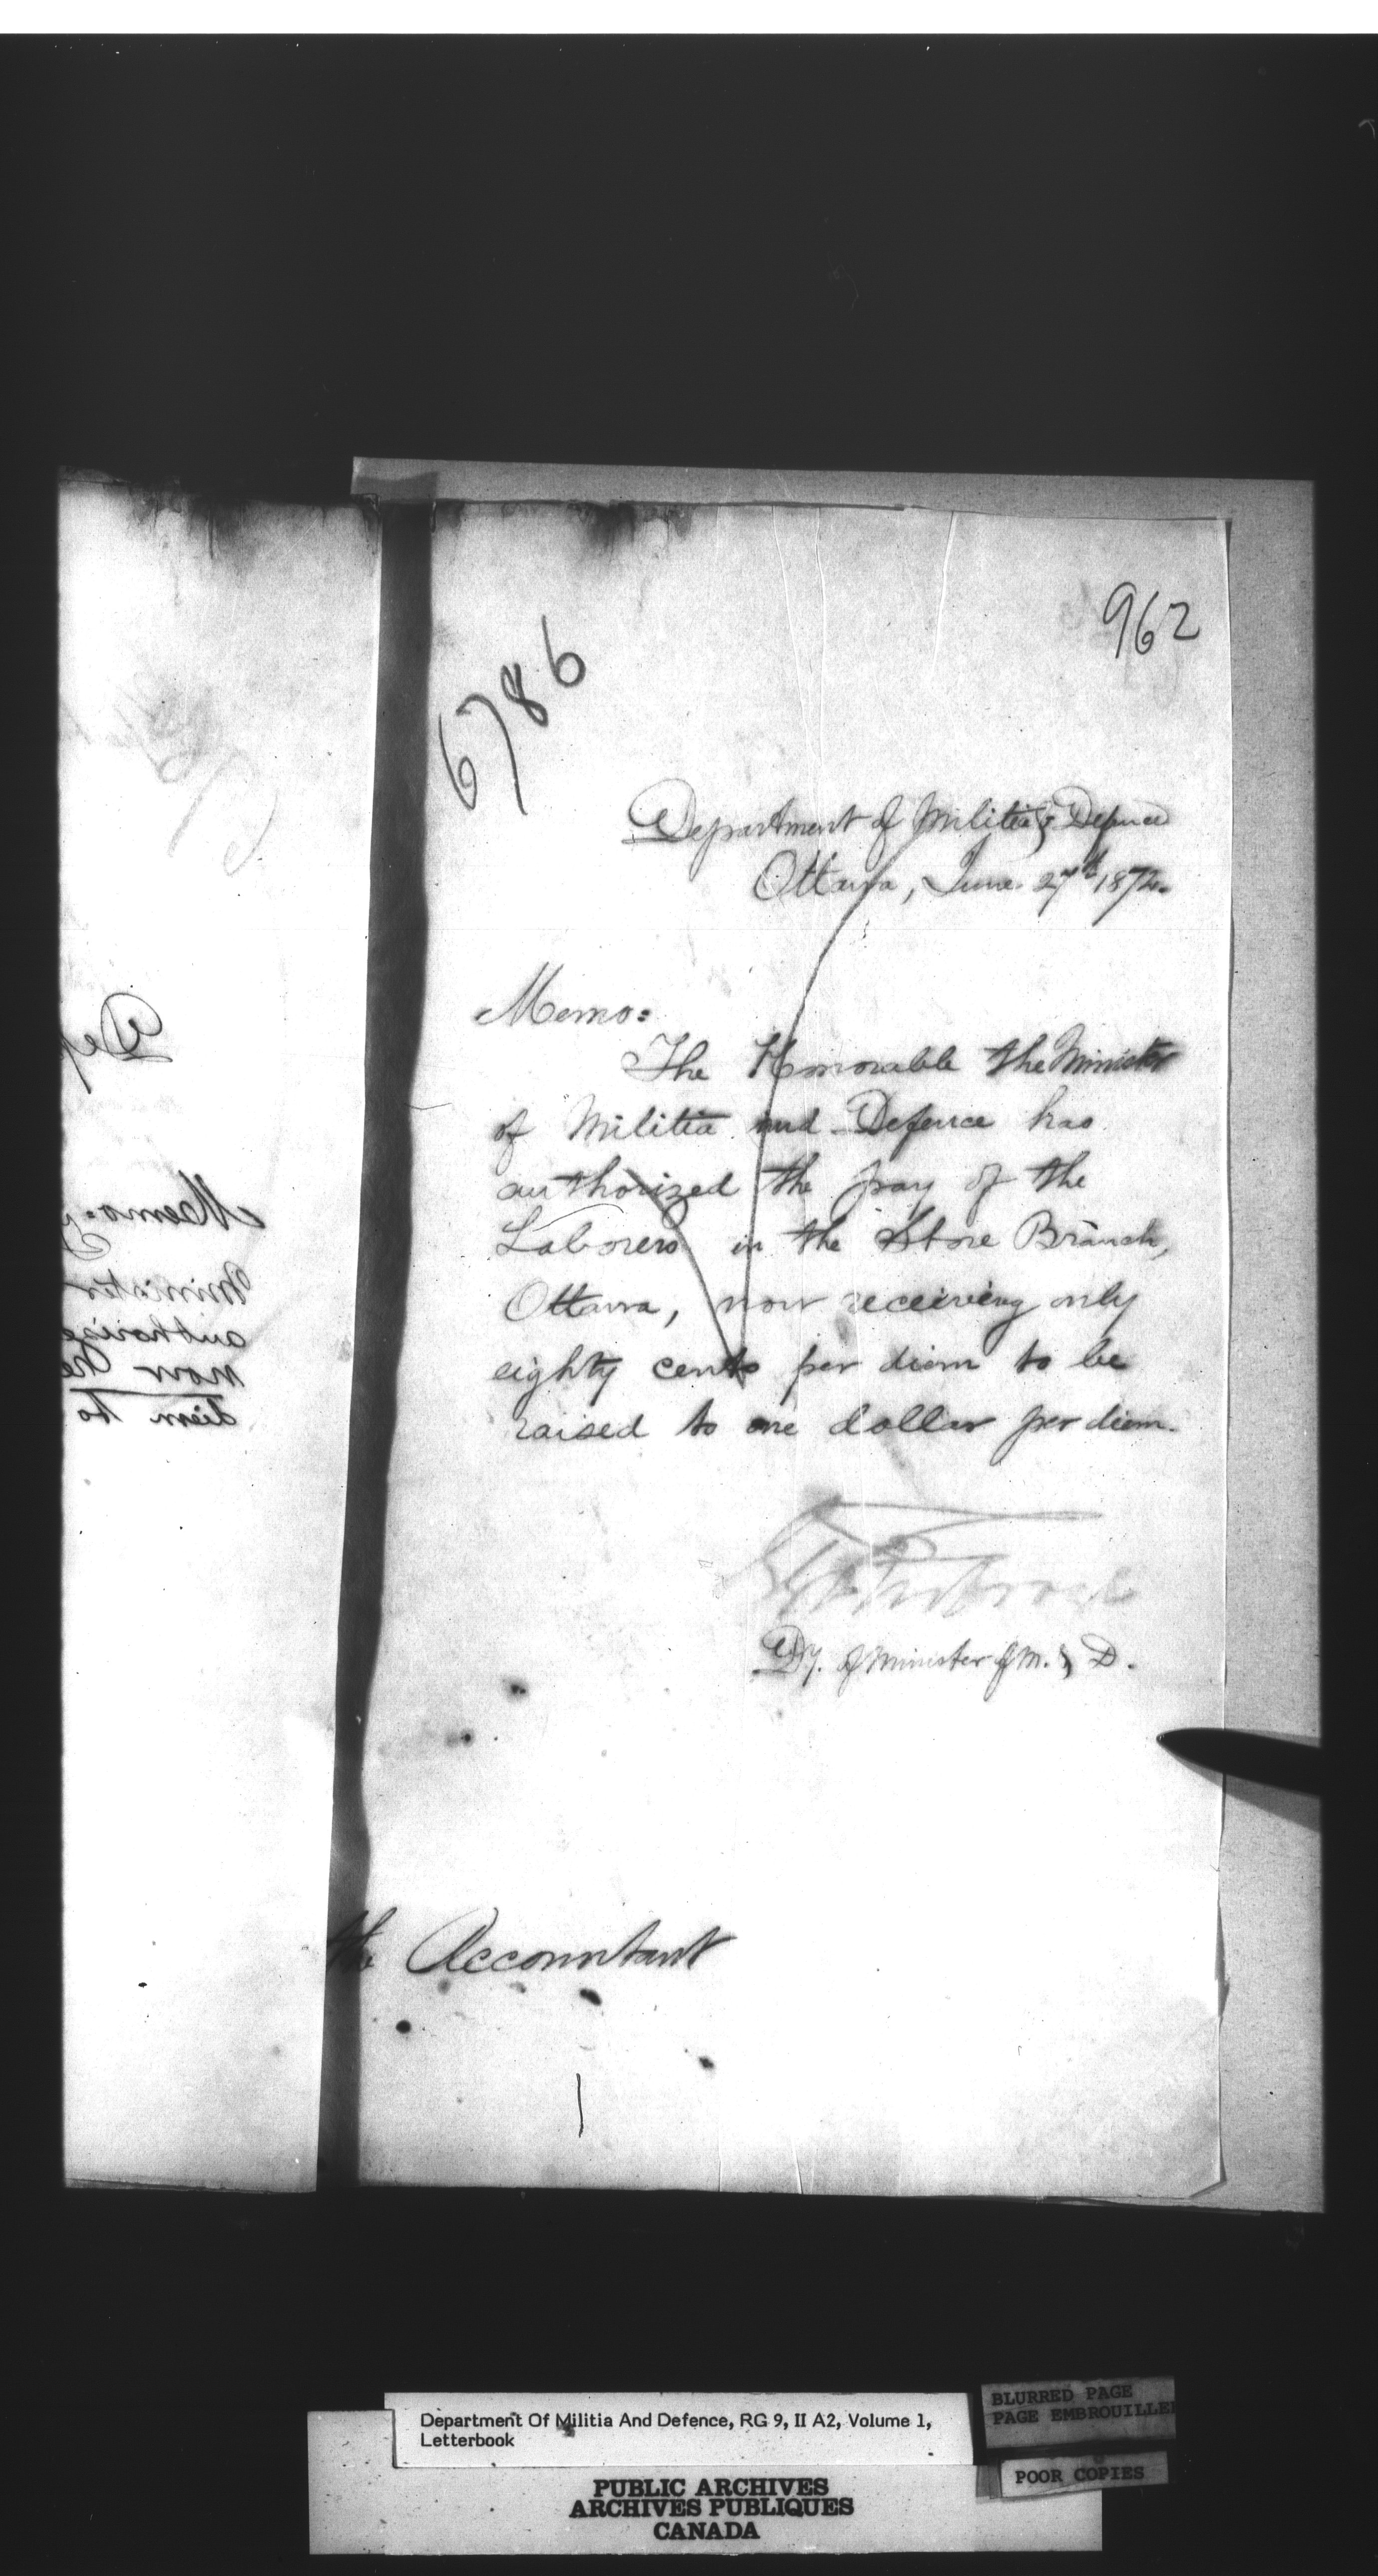 962
6786
Department of Militia & Defence
Ottawa, June 27th 1872.
Memo:
The Honorable the Minister
of Militia and Defence has
authorized the pay of the
Laborers in the Store Branch,
Ottawa, now receiving only
eighty cents per diem to be
raised to one dollar per diem.
Dy. of Minister of M. & D.
the Accountant
Dep
Memo:
Minister
authorise
now
diem to
Department Of Militia And Defence, RG 9, II A2, Volume 1,
Letterbook
BLURRED PAGE
PAGE EMBROUILLEE
POOR COPIES
PUBLIC ARCHIVES
ARCHIVES PUBLIQUES
CANADA